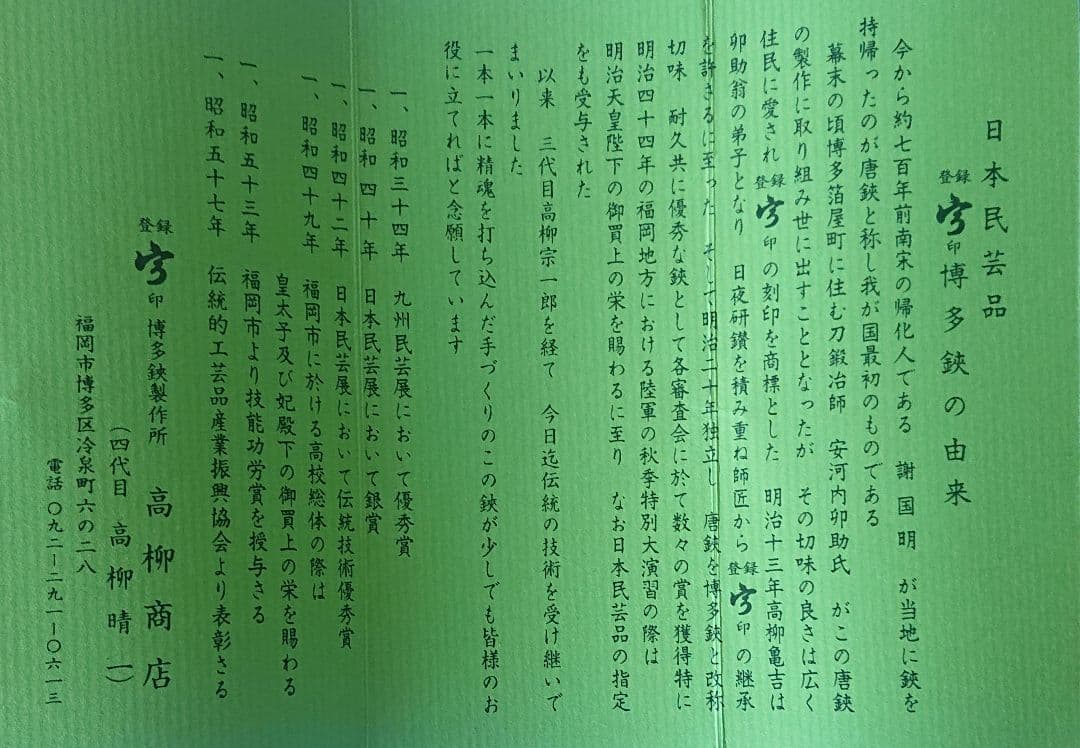 日本民芸品
登録宇印博多鋏の由来
今から約七百年前南宋の帰化人である 謝国明 が当地に鋏を
持帰ったのが唐鋏と称し我が国最初のものである
幕末の頃博多箔屋町に住む刀鍛冶師 安河内卯助氏 がこの唐鋏
の製作に取り組み世に出すこととなったが その切味の良さは広く
住民に愛され登録宇印の刻印を商標とした 明治十三年高柳亀吉は
卯助翁の弟子となり 日夜研鑽を積み重ね師匠から登録宇印の継承
を許さるに至った そして明治二十年独立し 唐鋏を博多鋏と改称
切味 耐久共に優秀な鋏として各審査会に於て数々の賞を獲得特に
明治四十四年の福岡地方における陸軍の秋季特別大演習の際は
明治天皇陛下の御買上の栄を賜わるに至り なお日本民芸品の指定
をも受与された
以来 三代目高柳宗一郎を経て 今日迄伝統の技術を受け継いで
まいりました
一本一本に精魂を打ち込んだ手づくりのこの鋏が少しでも皆様のお
役に立てればと念願しています
一、昭和三十四年 九州民芸展において優秀賞
一、昭和四十年 日本民芸展において銀賞
一、昭和四十二年 日本民芸展において伝統技術優秀賞
一、昭和四十九年 福岡市に於ける高校総体の際は
皇太子及び妃殿下の御買上の栄を賜わる
一、昭和五十三年 福岡市より技能功労賞を授与さる
一、昭和五十七年 伝統的工芸品産業振興協会より表彰さる
登録宇印博多鋏製作所 高柳商店
(四代目 高柳晴一)
福岡市博多区冷泉町六の二八
電話 〇九二ー二九一ー〇六一三